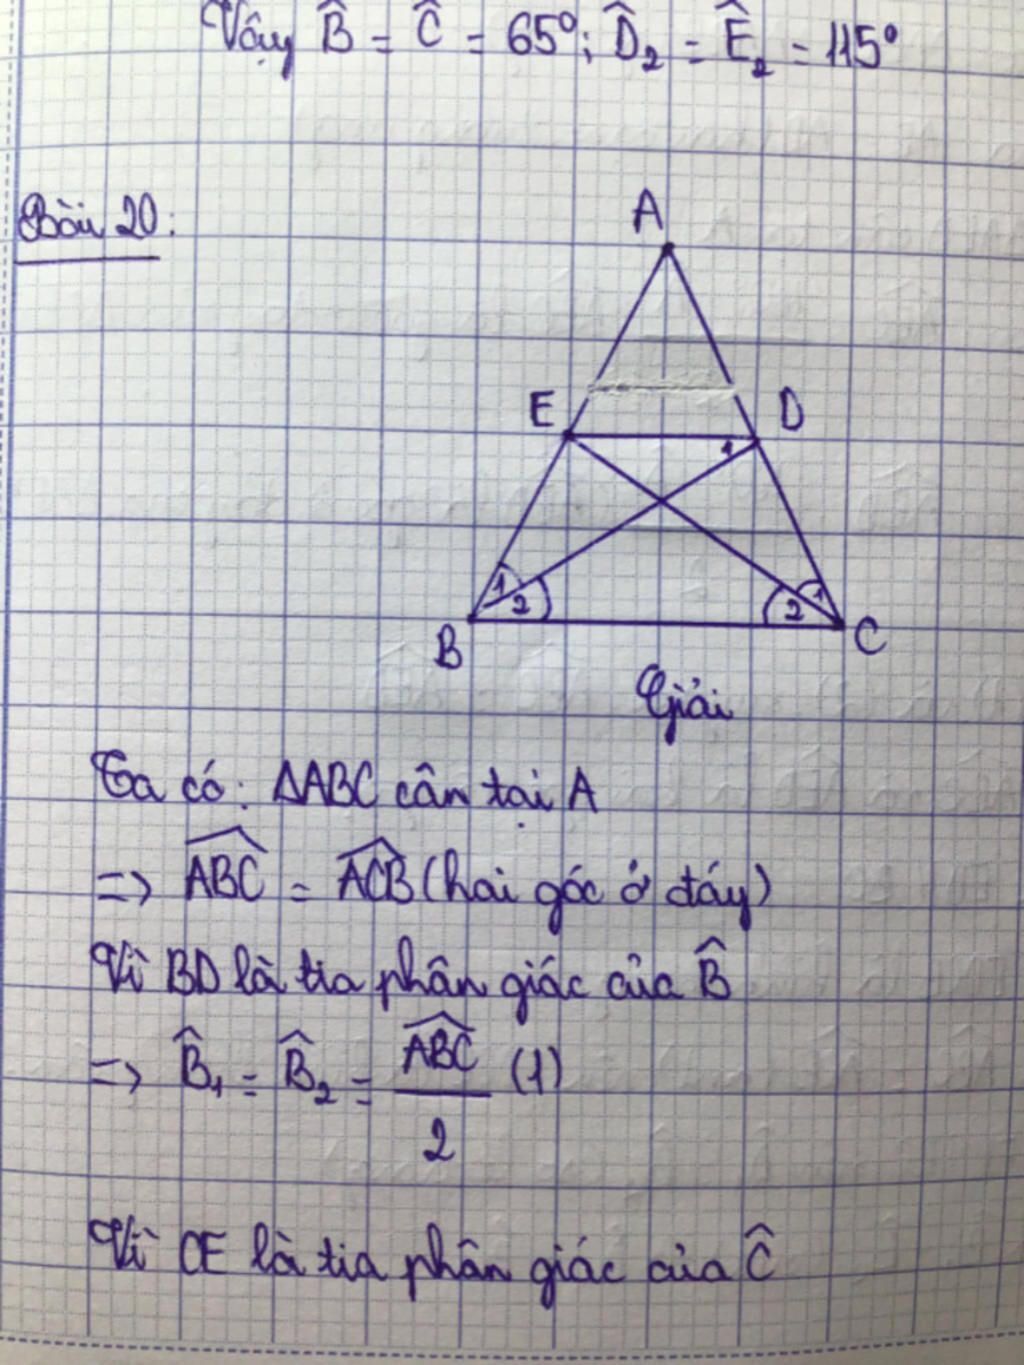 Vậy B̂ = Ĉ = 65°; D̂₂ = Ê₂ = 115°
Bài 20:
A
E D
1
1 2 2 1
B C
Giải
Ta có: ΔABC cân tại A
=> \widehat{ABC} = \widehat{ACB} (hai góc ở đáy)
Vì BD là tia phân giác của B̂
=> B̂₁ = B̂₂ = \widehat{ABC}/2 (1)
Vì CE là tia phân giác của Ĉ